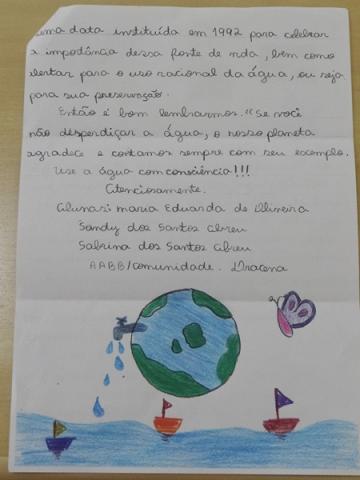 uma data instituída em 1992 para celebrar
a impodância dessa fonte de vida, bem como
alertar para o uso racional da água, ou seja
para sua preservação.
Então é bom lembrarmos. "Se você
não desperdiçar a água, o nosso planeta
agradece e contamos sempre com seu exemplo.
Use a água com consciência!!!
Atenciosamente.
Alunas: Maria Eduarda de Oliveira
Sandy dos Santos Abreu
Sabrina dos Santos Abreu
AABB/comunidade. Dracena